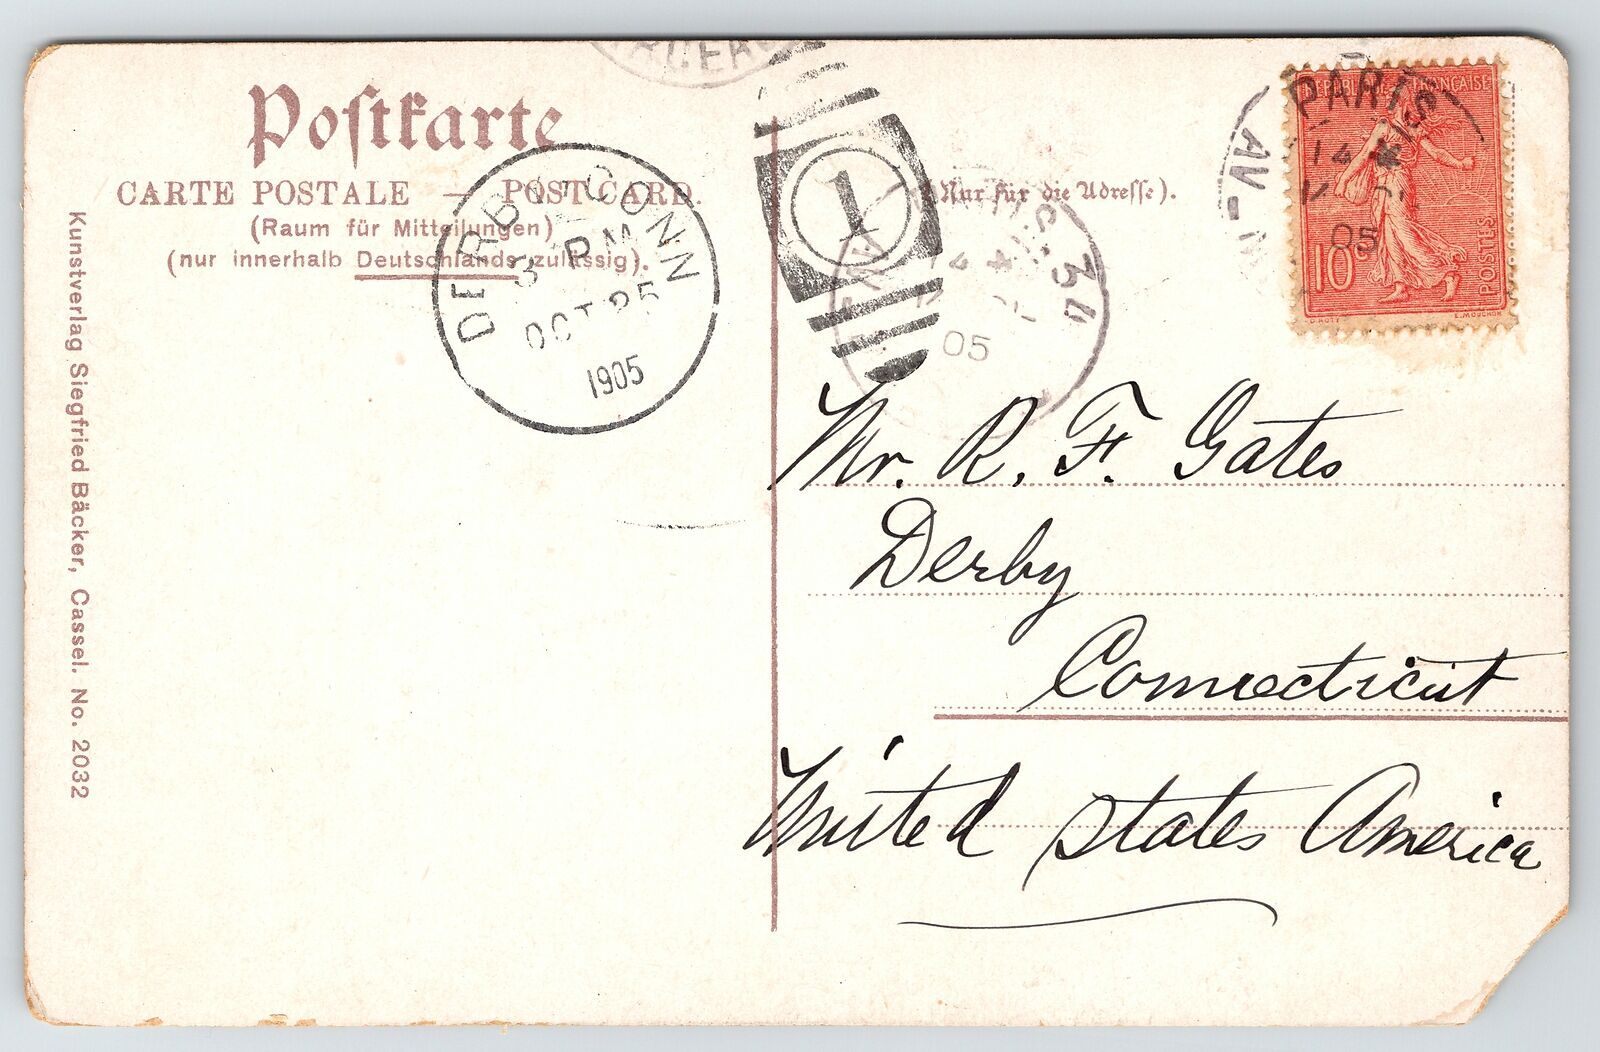 Postkarte
CARTE POSTALE — POST CARD.
(Raum für Mitteilungen)
(nur innerhalb Deutschlands zulässig).
(Nur für die Adresse).
DERBY CONN
3 PM
OCT 25
1905
1
34
AV
4
05
PARIS
14
AV
05
REPUBLIQUE FRANÇAISE
10c
POSTES
E. MOUCHON
Mr. R. F. Gates
Derby
Connecticut
United States America
Kunstverlag Siegfried Bäcker, Cassel. No. 2032